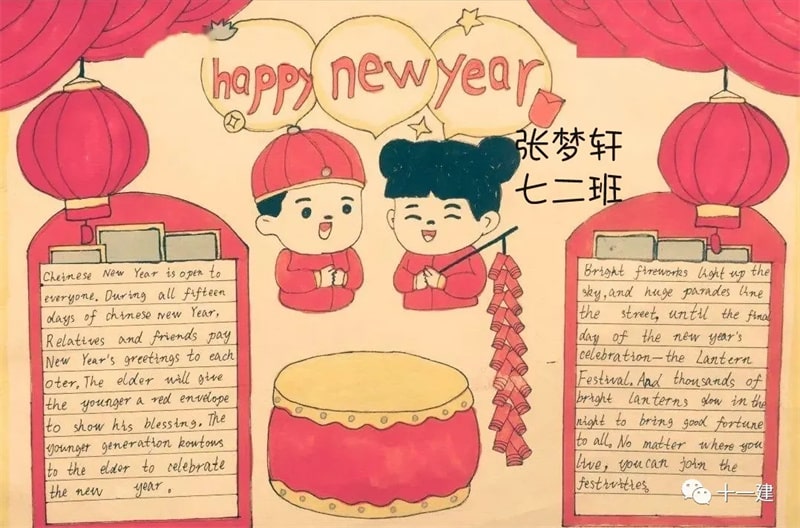 happy new year
张梦轩
七二班
Cheinese New Year is open to
everyone. During all fifteen
days of chinese new Year,
Relatives and friends pay
New Year's greetings to each
Oter, The elder will give
the younger a red envelope
to show his blessing. The
younger generation kowtows
to the elder to celebrate
the new year.
Bright fireworks light up the
sky, and huge parades line
the street, until the final
day of the new year's
celebration—the Lantern
Festival. And thousands of
bright lanterns glow in the
night to bring good fortune
to all. No matter where you
live, you can join the
festivities.
十一建